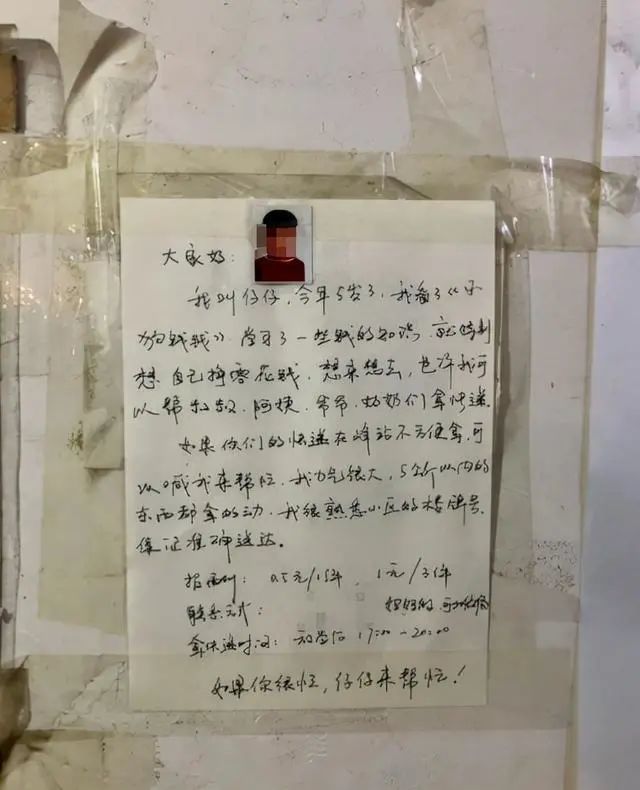 大家好:
我叫仔仔,今年5岁了,我看了《小
狗钱钱》学习了一些钱的知识,就特别
想自己挣零花钱,想来想去,也许我可
以帮叔叔、阿姨、爷爷、奶奶们拿快递。
如果你们的快递在峰站不方便拿,可
以喊我来帮忙,我力气很大,5公斤以内的
东西都拿的动,我很熟悉小区的楼牌号,
保证准确送达。
报酬: 0.5元/1件, 1元/3件
联系方式: 妈妈的,可加微信
拿快递时间: 放学后 17:00-20:00
如果你很忙,仔仔来帮忙!